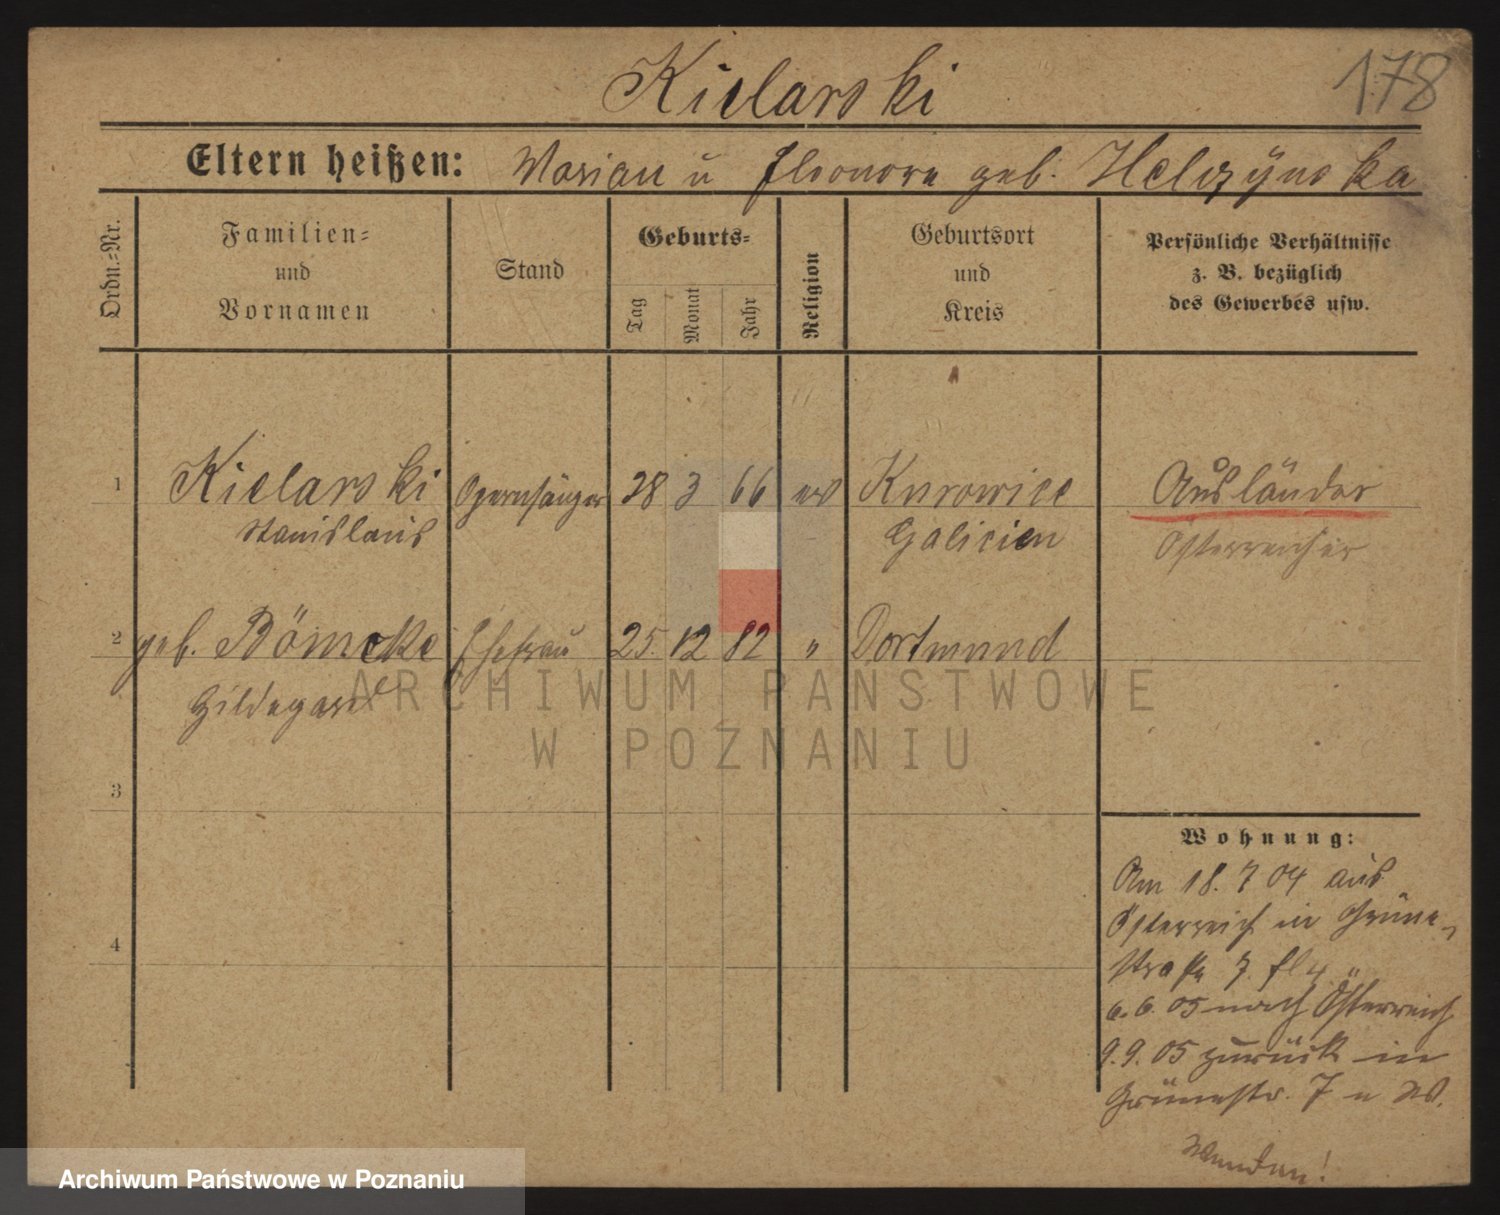 Kielarski
178
Eltern heißen: Marian u Eleonore geb. Helczÿnska
Ordn.=Nr.
Familien= und Vornamen
Stand
Geburts=
Tag
Monat
Jahr
Religion
Geburtsort und Kreis
Persönliche Verhältnisse
z. B. bezüglich
des Gewerbes usw.
1 Kielarski Opernsänger 28 3 66 ev Kurowice Ausländer
Stanislaus Galicien Österreicher
2 geb. Bömcke Ehefrau 25. 12 82 " Dortmund
Hildegard
3
4
Wohnung:
Am 18. 7 04 aus
Österreich in Grüne-
straße 7.
6. 6. 05 nach Österreich
9. 9. 05 zurück in
Grünestr. 7 u W.
Wenden!
ARCHIWUM PAŃSTWOWE
W POZNANIU
Archiwum Państwowe w Poznaniu